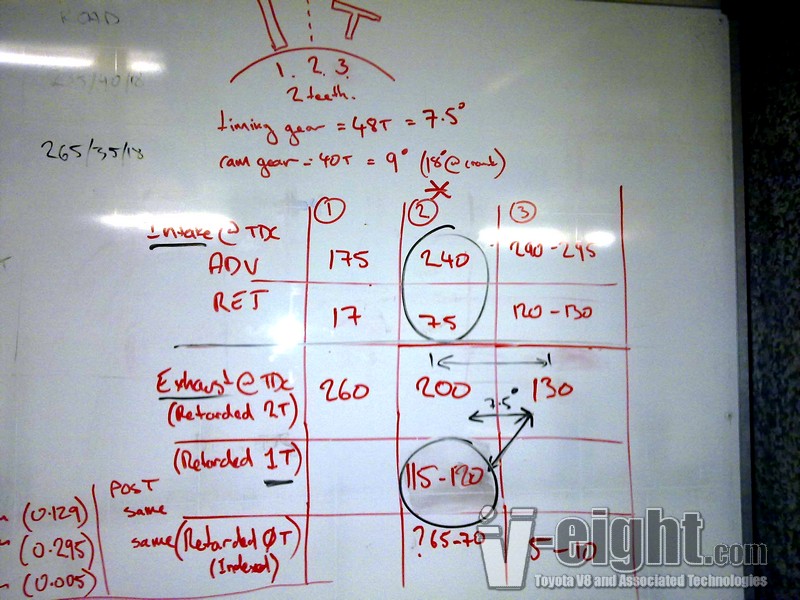 ROAD
1. 2. 3.
2 teeth.
265/35/18
timing gear = 48T = 7.5°
cam gear = 40T = 9° (18°@crank)
① ② ③
Intake @ TDC
ADV 175 240 290-295
RET 17 75 120-130
Exhaust @ TDC 260 200 130
(Retarded 2T)
7.5°
(Retarded 1T) 115-120
POST
same
same (Retarded ØT) ?65-70 5-10
(Indexed)
(0.129)
(0.295)
(0.005)
V-eight.com
Toyota V8 and Associated Technologies